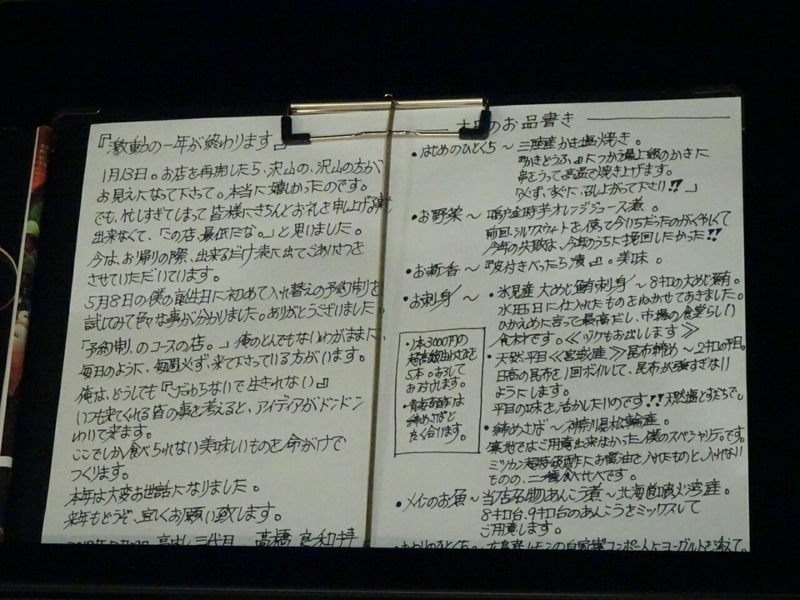 『激動の一年が終わります』
1月13日。お店を再開したら、沢山の、沢山の方が
お見えになって下さって。本当に嬉しかったのです。
でも、忙しすぎてしまって皆様にきちんとお礼を申し上げ
出来なくて、「この店、最低だな。」と思いました。
今は、お帰りの際、出来るだけ表に出てごあいさつを
させていただいています。
5月8日の僕の誕生日に初めて入れ替えの予約制を
試してみて色々な事が分かりました。ありがとうございました
「予約制、のコースの店。」俺のとんでもないわがままに、
毎日のように、毎週必ず、来て下さっている方がいます。
俺は、どうしても『こだわらないで生きれない』
いつも来てくれる皆の事を考えると、アイディアがドンドン
わいて来ます。
ここでしか食べられない美味しいものを命がけで
つくります。
本年は大変お世話になりました。
来年もどうぞ、宜しくお願い致します。
三代目 高橋
のお品書き
・はじめのひとくち~三陸産かき塩焼き。
『かきどうふ』につかう最上級のかきに
串をうって高温で焼き上げます。
「必ず、すぐに、召し上がって下さい!!」
・お野菜~鳴戸金時芋オレンジジュース煮。
前回、シルクスウィートを使って今いちだったのがくやしくて
今年の失敗は、今年のうちに挽回したかった!!
・お新香~『皮付きべったら漬』。美味。
・お刺身~・氷見産 大めじ鮪刺身~8キロの大めじ鮪。
水五日に仕入れたものをねかせておきました。
ひかえめに言って最高だし、市場の食堂らしい
食材です。≪ヅケもお出しします≫
・1本3000円の
超高級
5本。おろして
おつけします。
・青
締めさばと
良く合います。
・天然平目≪宮城産≫昆布締め~2キロの平目。
日高の昆布を1回ボイルして、昆布が強すぎない
ようにします。
平目の味を活かしたいのです!!天然塩とすだちで。
・締めさば~神奈川県松輪産。
築地ではご用意出来なかった、僕のスペシャリテです。
ミツカン超特級酢にお醤油を入れたものと、入れない
ものの、二種食べ比べです。
・メインのお魚~当店名物あんこう煮~北海道噴火湾産。
8キロ台、9キロ台のあんこうをミックスして
ご用意します。
のひとくち~広島産レモンの自家製コンポートにヨーグルトを添えて。